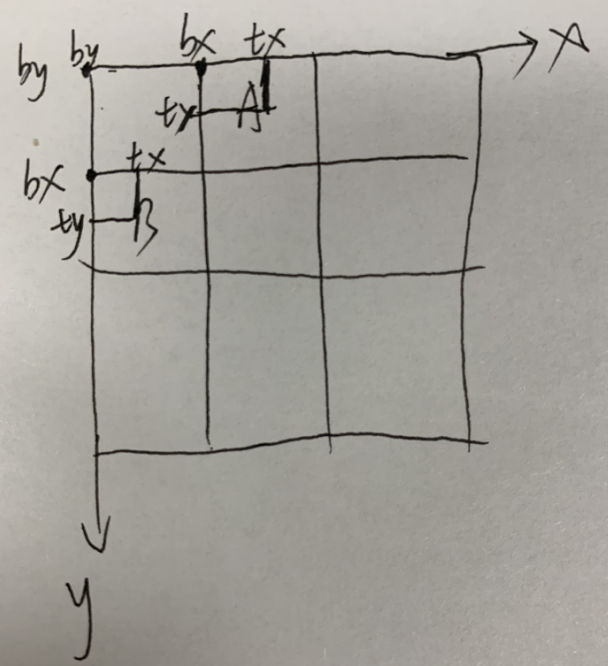 by by bx tx x
ty A
bx tx
ty B
y